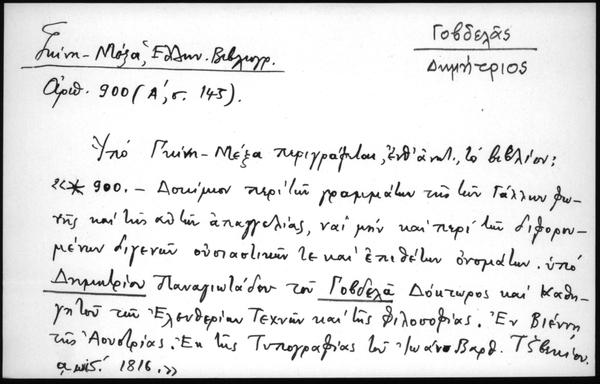 Γκίνη-Μέξα, Ἑλλην. Βιβλιογρ.
Γοβδελᾶς
Δημήτριος
Ἀριθ. 900 (Α΄, σ. 143).
Ὑπό Γκίνη-Μέξα περιγράφεται, ἔνθ' ἀνωτ., τό βιβλίον:
«✻ 900. — Δοκίμιον περί τῶν γραμμάτων τῆς τῶν Γάλλων φω-
νῆς καί τῆς αὐτῶν ἀπαγγελίας, ναί μήν καί περί τῶν διφορου-
μένων διγενῶν οὐσιαστικῶν τε καί ἐπιθέτων ὀνομάτων. ὑπό
Δημητρίου Παναγιωτάδου τοῦ Γοβδελᾶ Δόκτωρος καί Καθη-
γητοῦ τῶν Ἐλευθερίων Τεχνῶν καί τῆς Φιλοσοφίας. Ἐν Βιέννῃ
τῆς Αουστρίας. Ἐκ τῆς Τυπογραφίας τοῦ Ἰωάν. Βαρθ. Τζβεκίου.
αωιϛ΄. 1816.»